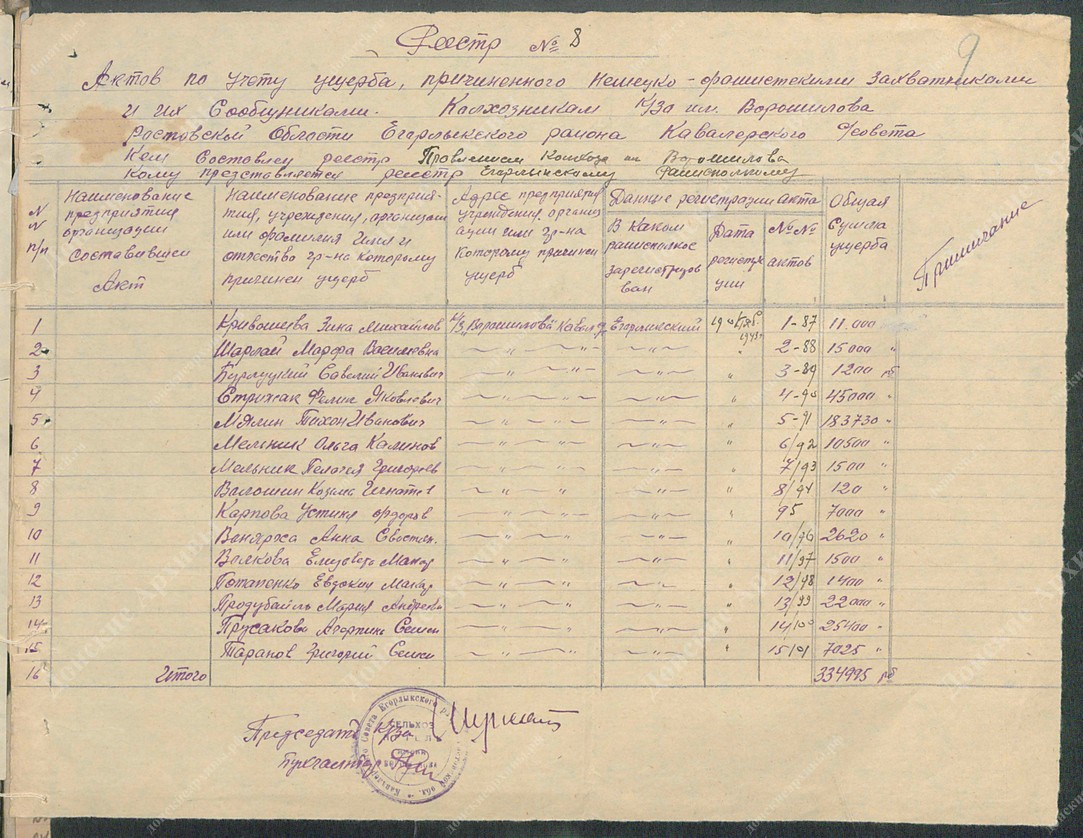 Реестр № 8
9
Актов по учету ущерба, причиненного немецко-фашистскими захватчиками
и их сообщниками. Колхозникам к/за им. Ворошилова
Ростовской Области Егорлыкского района Кавалерского с/совета
Кем составлен реестр Правлением Колхоза им Ворошилова
Кому представляется реестр Егорлыкскому Райисполкому
N N п/п
Наименование предприятия организации составившей Акт
Наименование предприятия, учреждения, организации или фамилия имя и отчество гр-на которому причинен ущерб
Адрес предприятия учреждения, организации или гр-на которому причинен ущерб
Данные регистрации акта
В каком райисполкоме зарегистрирован
Дата регистрации
№№ актов
Общая сумма ущерба
Примичание
1 Кривошева Зина Михайлов к/з Ворошилова Егорлыкский 1943 1-87 11.000
2 Шарлай Марфа Василевна —„— —„— „ 2-88 15000 „
3 Савелий Иванович —„— —„— „ 3-89 1200 рб
4 Стрижак Яковлевич —„— —„— „ 4-90 45000 „
5 Мялин Тихон Иванович —„— —„— „ 5-91 183730 „
6 Мельник Ольга Калинов —„— —„— „ 6/92 10500 „
7 Мельник Пелагея Григорев —„— —„— „ 7/93 1500 „
8 Валошин Козма Игнатов —„— —„— „ 8/94 120 „
9 Карпова Устиня —„— —„— „ 95 7000 „
10 Анна —„— —„— „ 10/96 2620 „
11 Елизовета Макар —„— —„— „ 11/97 1500 „
12 Потапенко Евдокия Макар —„— —„— „ 12/98 1400 „
13 Продубайль Мария Андреевн —„— —„— „ 13/99 22000 „
14 Прусакова Семен —„— —„— „ 14/100 25400 „
15 Таранов Григорий Семен —„— —„— „ 15/101 7025 „
16 Итого 334995 рб
Председатель к/за
Бухгалтер